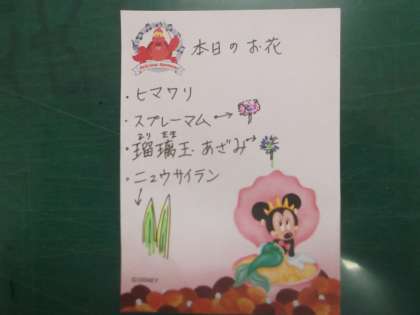 本日のお花
・ヒマワリ
・スプレーマム
るり たま
瑠璃玉あざみ
・ニュウサイラン
©DISNEY